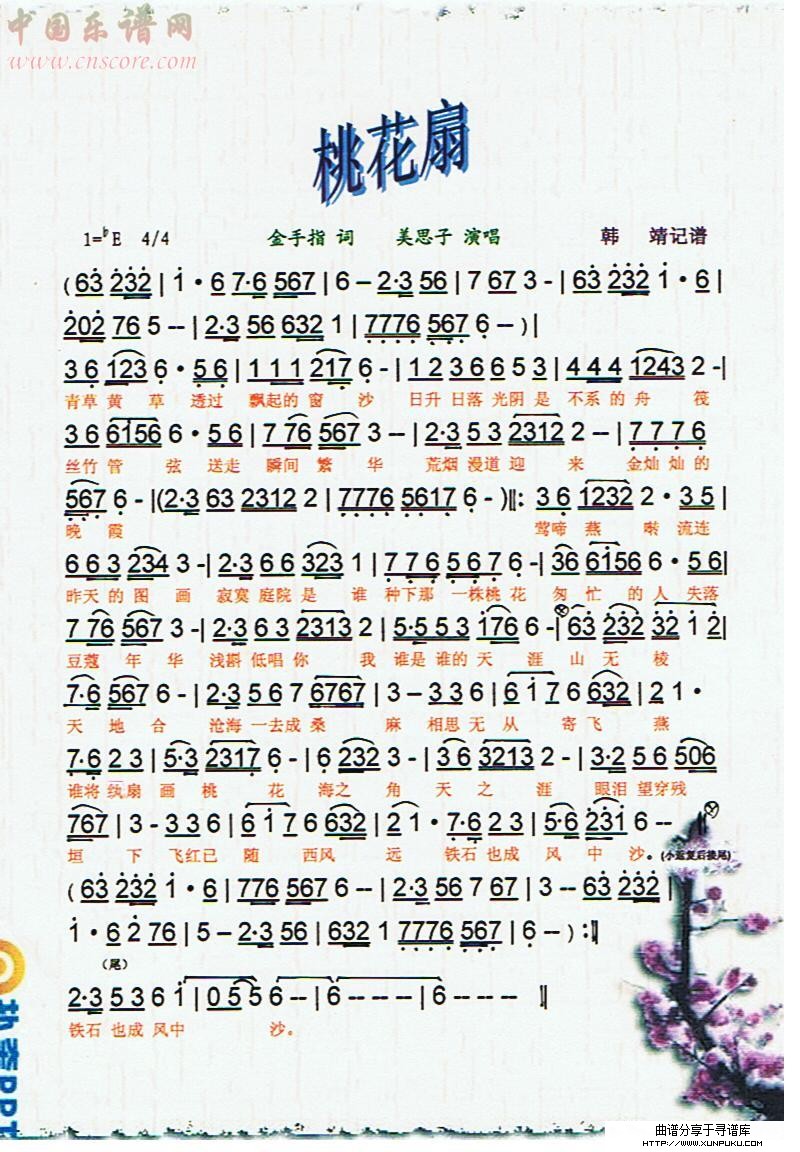 中国乐谱网
www.cnscore.com
桃花扇
1=♭E 4/4 金手指 词 美思子 演唱 韩 靖记谱
(63 232 | 1·6 7·6 567 | 6 – 2·3 56 | 7 67 3 – | 63 232 1·6 |
202 76 5 –– | 2·3 56 632 1 | 7776 567 6 –– )|
3 6 123 6·5 6 | 1 1 1 217 6 – | 1 2 3 6 6 5 3 | 4 4 4 1243 2 – |
青草 黄 草 透过 飘起的 窗 沙 日升 日落 光阴 是 不系 的 舟 筏
3 6 6156 6·5 6 | 7 76 567 3 –– | 2·3 5 3 2312 2 –– | 7 7 7 6
丝竹 管 弦 送走 瞬间 繁 华 荒烟 漫道 迎 来 金灿 灿的
567 6 – |(2·3 63 2312 2 | 7776 5617 6 – )‖: 3 6 1232 2·3 5 |
晚 霞 莺啼 燕 啭 流连
6 6 3 234 3 – | 2·3 6 6 323 1 | 7 7 6 5 6 7 6 – | 36 6156 6·56 |
昨天 的 图 画 寂寞 庭院 是 谁 种下那 一株桃 花 匆 忙 的 人 失落
7 76 567 3 – | 2·3 6 3 2313 2 | 5·5 5 3 176 6 – | 63 232 32 1 2 |
豆蔻 年 华 浅斟 低唱 你 我 谁是 谁的 天 涯 山 无 棱
7·6 567 6 – | 2·3 5 6 7 6767 | 3 – 3 3 6 | 6 1 7 6 632 | 2 1 ·
天 地 合 沧海 一去 成 桑 麻 相思 无 从 寄 飞 燕
7·6 2 3 | 5·3 2317 6 – | 6 232 3 – | 3 6 3213 2 – | 3·2 5 6 506
谁将 纨扇 画 桃 花 海之 角 天 之 涯 眼泪 望穿 残
767 | 3 – 3 3 6 | 6 1 7 6 632 | 2 1 · | 7·6 2 3 | 5·6 231 6 ––
垣 下 飞红已 随 西风 远 铁石 也成 风 中 沙。(小返复后接尾)
( 63 232 1·6 | 776 567 6 –– | 2·3 56 7 67 | 3 –– 63 232 |
1·6 2 76 | 5 – 2·3 56 | 632 1 7776 567 | 6 –– ) :‖
(尾)
2·3 5 3 6 1 | 0 5 5 6 –– | 6 –––– | 6 –––– ‖
铁石 也成 风中 沙。
曲谱分享于寻谱库
HTTP://WWW.XUNPUKU.COM